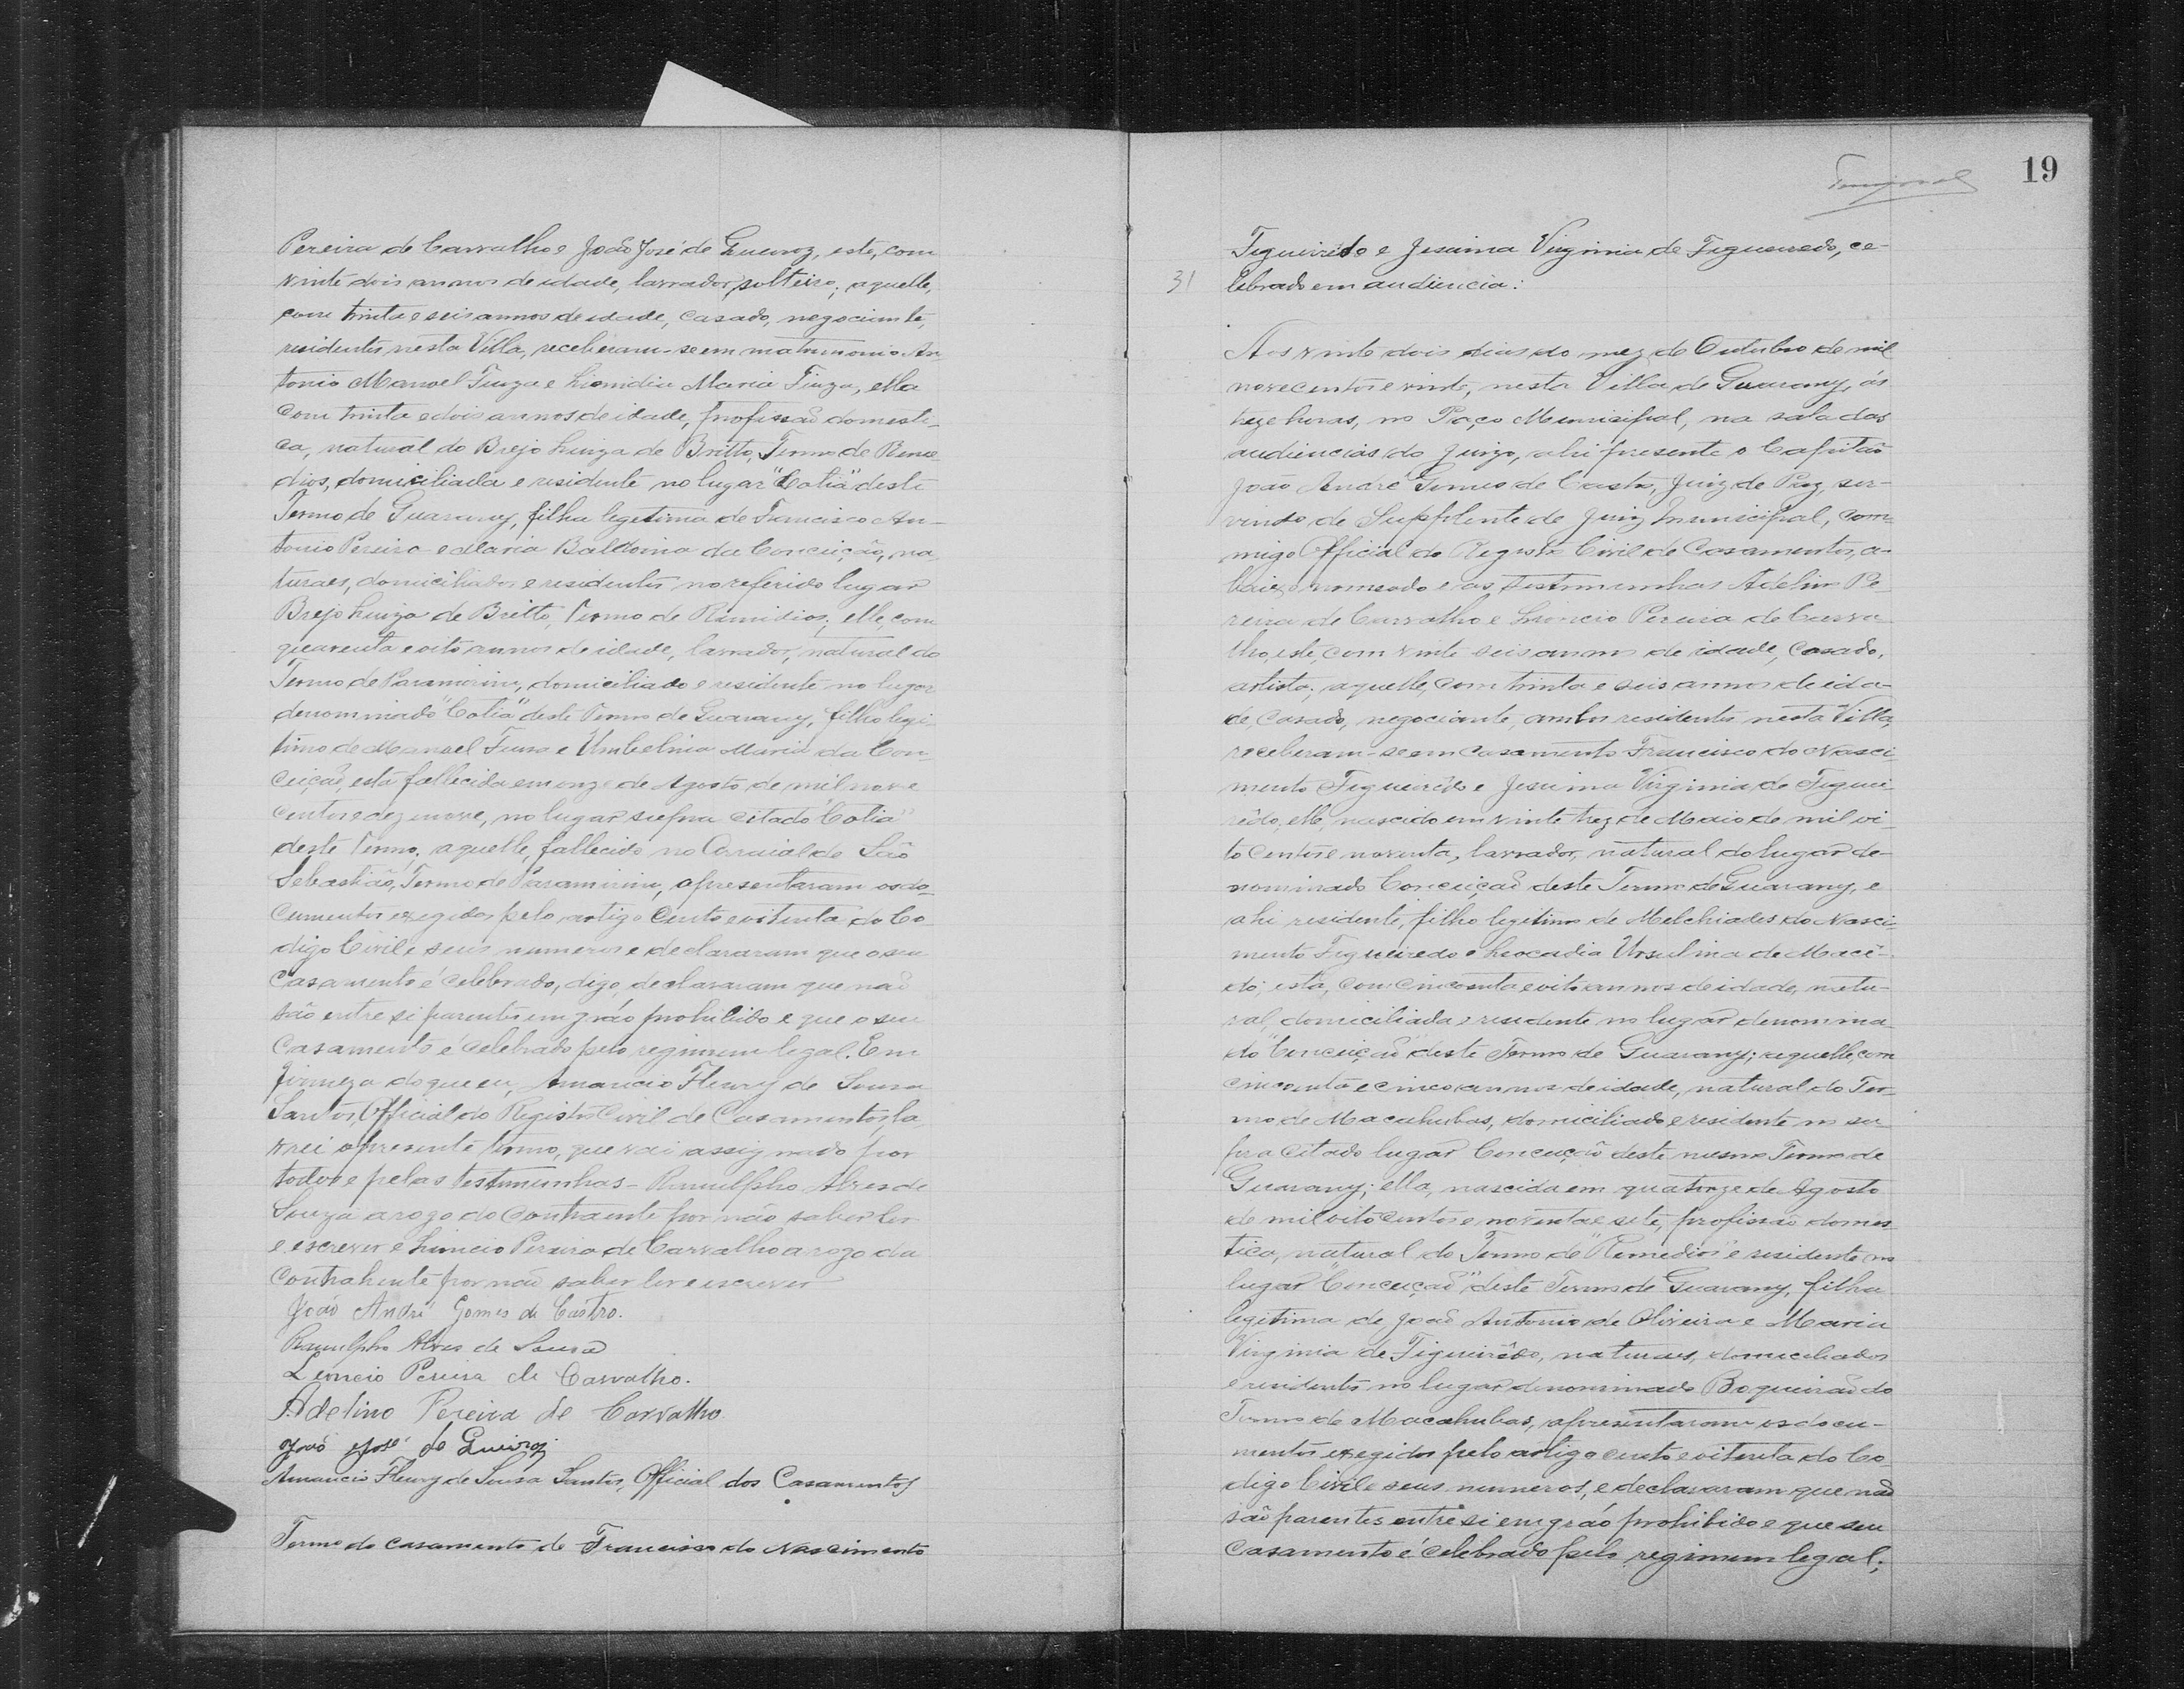 Pereira de Carvalho e João José de Queiroz, este, com
vinte dois annos de idade, lavrador, solteiro; aquelle,
com trinta e seis annos de idade, casado, negociante,
residentes nesta Villa, receberam-se em matrimonio An
tonio Manoel e Leonidia Maria, ella
com trinta e dois annos de idade, profissão domesti-
ca, natural do Brejo Luiza de Britto, Termo de Reme
dios, domiciliada e residente no lugar "Cotia" deste
Termo de Guarany, filha legitima de Francisco An-
tonio Pereira e Maria Baldoina da Conceição, na-
turaes, domiciliados e residentes no referido lugar
Brejo Luiza de Britto, Termo de Remidios; elle, com
quarenta e oito annos de idade, lavrador, natural do
Termo de Paramirim, domiciliado e residente no lugar
denominado "Cotia" deste Termo de Guarany, filho legi-
timo de Manoel e Umbelina Maria da Con-
ceição, esta fallecida em onze de Agosto de mil nove
centos e dezenove, no lugar supra citado "Cotia"
deste Termo; aquelle, fallecido no Arraial de São
Sebastião, Termo de Paramirim, apresentaram os do-
cumentos exegidos pelo artigo cento e oitenta do Co-
digo Civil e seus numeros e declararam que o seu
casamento é celebrado, digo, declararam que não
são entre si parentes em gráo prohibido e que o seu
casamento é celebrado pelo regimem legal. Em
firmeza do que eu, Amancio Fleury de Sousa
Santos, Official do Registro Civil de Casamentos, la
vrei o presente termo, que vai assignado por
todos e pelas testimunhas - Ranulpho Alves de
Souza a rogo do contraente por não saber ler
e escrever e Leoncio Pereira de Carvalho a rogo da
contrahente por não saber ler e escrever
João André Gomes de Castro.
Ranulpho Alves de Sousa
Leoncio Pereira de Carvalho.
Adelino Pereira de Carvalho
João José de Queiroz
Amancio Fleury de Sousa Santos, Official dos Casamentos
Termo do casamento de Francisco do Nascimento
19
Figueirêdo e Jesuina Virginia de Figueiredo, ce-
31 lebrado em audiencia:
Aos vinte dois dias do mez de Outubro de mil
novecentos e vinte, nesta Villa de Guarany, ás
treze horas, no Paço Municipal, na sala das
audiencias do Juizo, ahi presente o Capitão
João André Gomes de Castro, Juiz de Paz, ser-
vindo de Supplente de Juiz Municipal, com-
migo Official do Registro Civil de Casamentos, a-
baixo nomeado e as testimunhas Adelino Pe
reira de Carvalho e Leoncio Pereira de Carva
lho, este, com vinte seis annos de idade, casado,
artista; aquelle, com trinta e seis annos de ida-
de, casado, negociante, ambos residentes nesta Villa,
receberam-se em casamento Francisco do Nasci-
mento Figueirêdo e Jesuina Virginia de Figuei
rêdo, elle, nascido em vinte trez de Maio de mil oi-
to centos e noventa, lavrador, natural do lugar de-
nominado Conceição deste Termo de Guarany, e
ahi residente, filho legitimo de Melchiades do Nasci-
mento Figueiredo e Leocadia Ursulina de Macê-
do; esta, com cincoenta e oito annos de idade, natu-
ral, domiciliada e residente no lugar denomina
do "Conceição" deste Termo de Guarany; aquelle, com
cincoenta e cinco annos de idade, natural do Ter-
mo de Macahubas, domiciliado e residente no su-
pra citado lugar Conceição deste mesmo Termo de
Guarany; ella, nascida em quatorze de Agosto
de mil oito centos e noventa e sete, profissão domes
tica, natural do Termo de "Remedios" e residente no
lugar "Conceição" deste Termo de Guarany, filha
legitima de João Antonio de Oliveira e Maria
Virginia de Figueirêdo, naturaes, domiciliados
e residentes no lugar denominado Boqueirão do
Termo de Macahubas, apresentaram os docu-
mentos exegidos pelo artigo cento e oitenta do Co-
digo Civil e seus numeros, e declararam que não
são parentes entre si em gráo prohibido e que seu
casamento é celebrado pelo regimem legal;